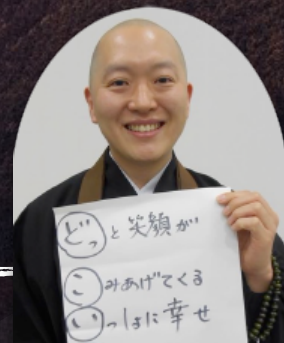 どっと笑顔が
こみあげてくる
いっしょに幸せ